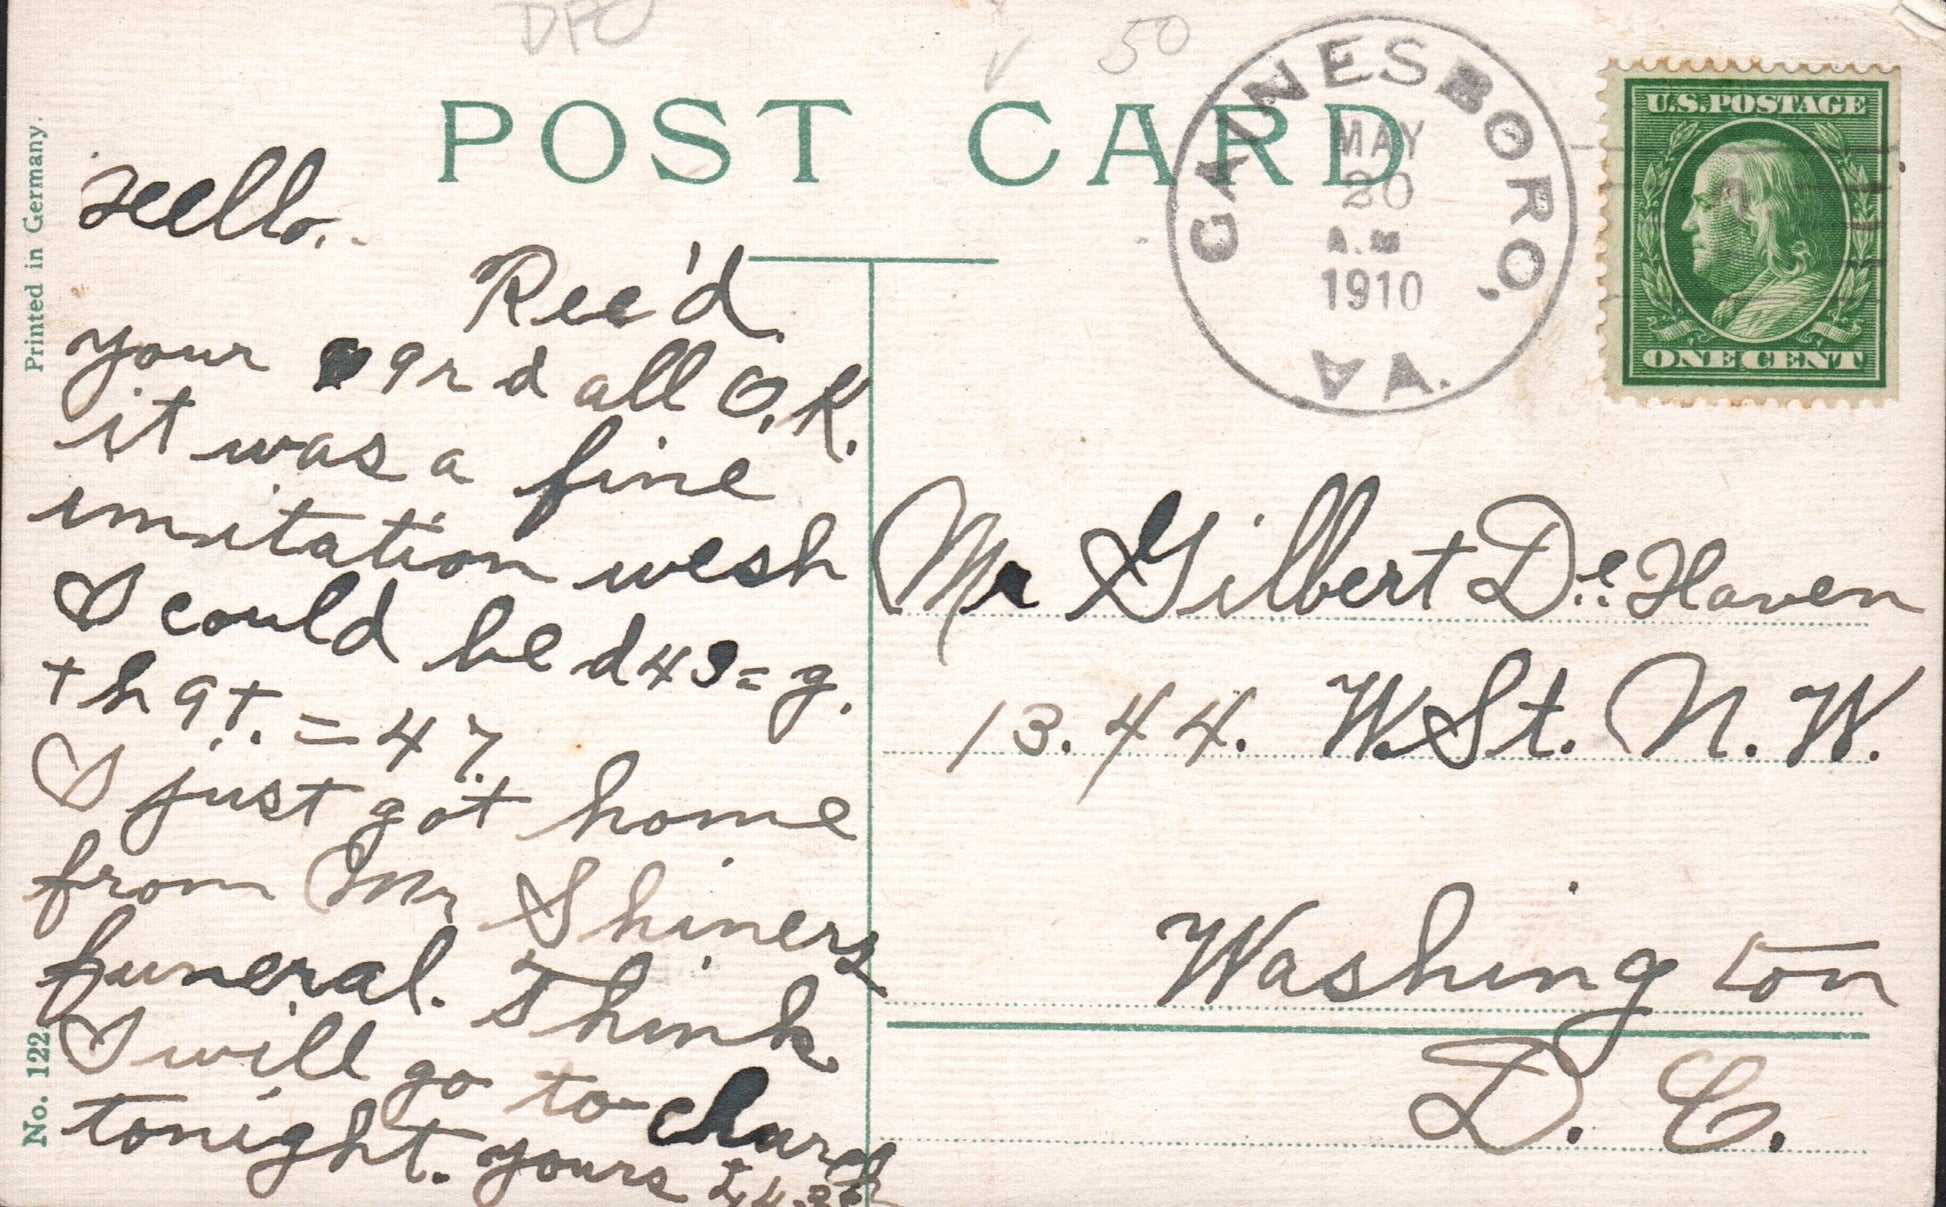 DPO
50
POST CARD
GAINESBORO, VA.
MAY
20
A.M
1910
U.S. POSTAGE
ONE CENT
Printed in Germany.
No. 122.
Hello.
Rec'd
your 9rd all O.K.
it was a fine
imitation wesh
I could be d43=g.
th9t. = 47.
I just got home
from Mr Shiners
funeral. Think
I will go to church
tonight. yours
Mr Gilbert De Haven
13.44. W. St. N. W.
Washington
D. C.